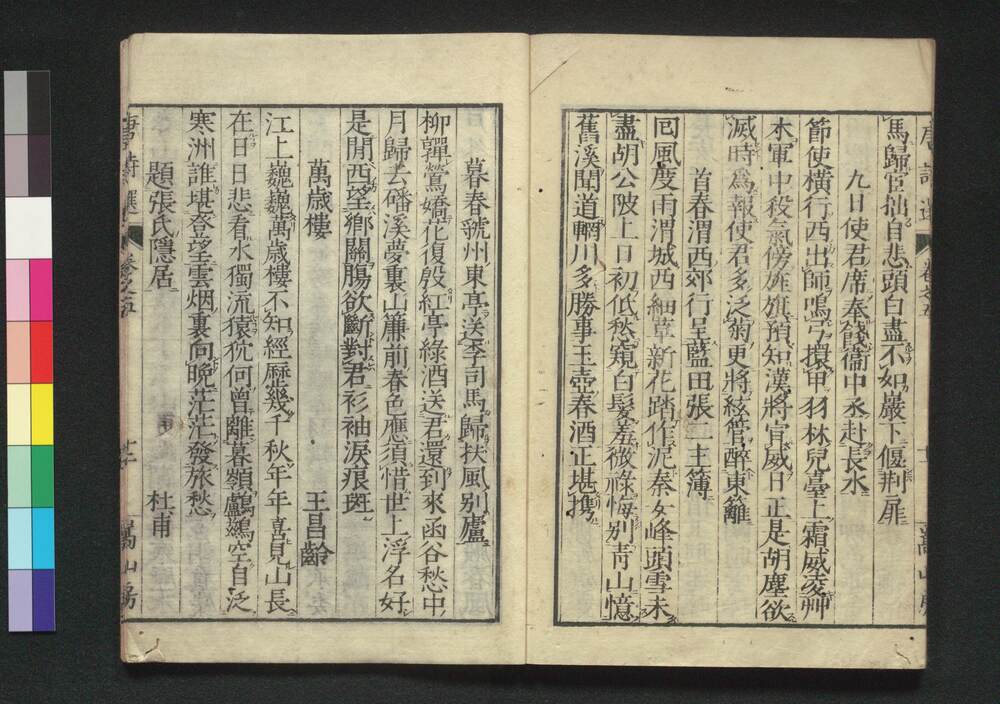 馬歸臣拙自悲頭白盡不如巖下偃荆扉
九日使君席奉餞衞中丞赴長水
節使橫行西出師鳴弓擐甲羽林兒臺上霜威凌艸
木軍中殺氣傍旌旗預知漢將宣威日正是胡塵欲
滅時爲報使君多泛菊更將絃管醉東籬
首春渭西郊行呈藍田張二主簿
回風度雨渭城西細草新花踏作泥秦女峰頭雪未
盡胡公陂上日初低愁窺白髮羞微祿悔別靑山憶
舊溪聞道輞川多勝事玉壺春酒正堪携
暮春虢州東亭送李司馬歸扶風別廬
柳嚲鶯嬌花復殷紅亭綠酒送君還到來函谷愁中
月歸去磻溪夢裏山簾前春色應須惜世上浮名好
是閒西望鄉關腸欲斷對君衫袖淚痕斑
萬歲樓 王昌齡
江上巍巍萬歲樓不知經歷幾千秋年年喜見山長
在日日悲看水獨流猿狖何曾離暮嶺鸕鷀空自泛
寒洲誰堪登望雲烟裏向晚茫茫發旅愁
題張氏隱居 杜甫
唐詩選 卷之五